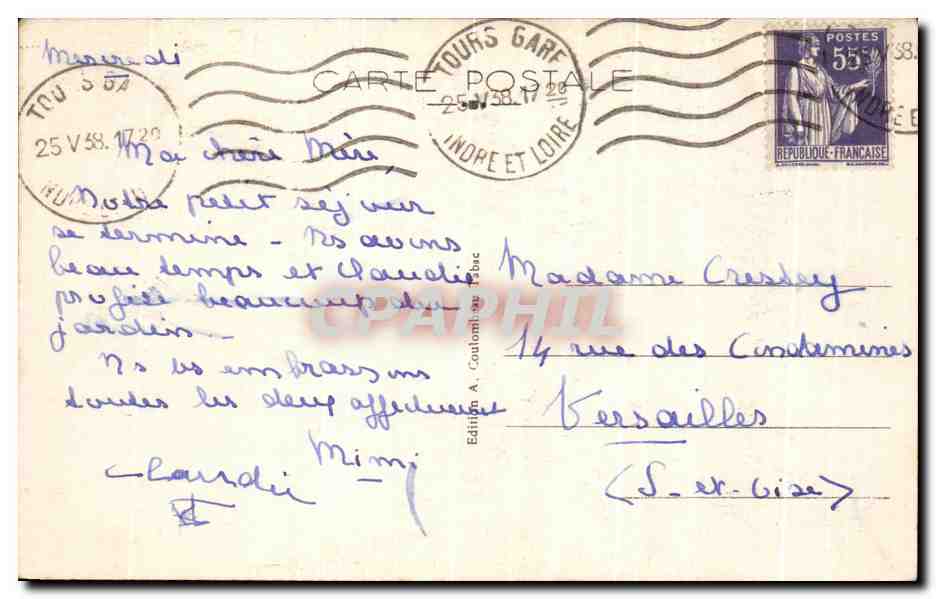 Mercredi
CARTE POSTALE
TOURS GARE
25 V 38. 17 20
INDRE ET LOIRE
25 V 38. 17 20
POSTES
55c
REPUBLIQUE-FRANÇAISE
Ma chère Mère
Notre petit séjour
se termine - Ns avons
beau temps et Claudie
profite beaucoup du
jardin -
Ns vs embrassons
toutes les deux affectueust
Mimi
Claudie
Edition A. Coulombeau Tabac
Madame Cressey
14 rue des Condamines
Versailles
(S-et-Oise)
CPAPHIL